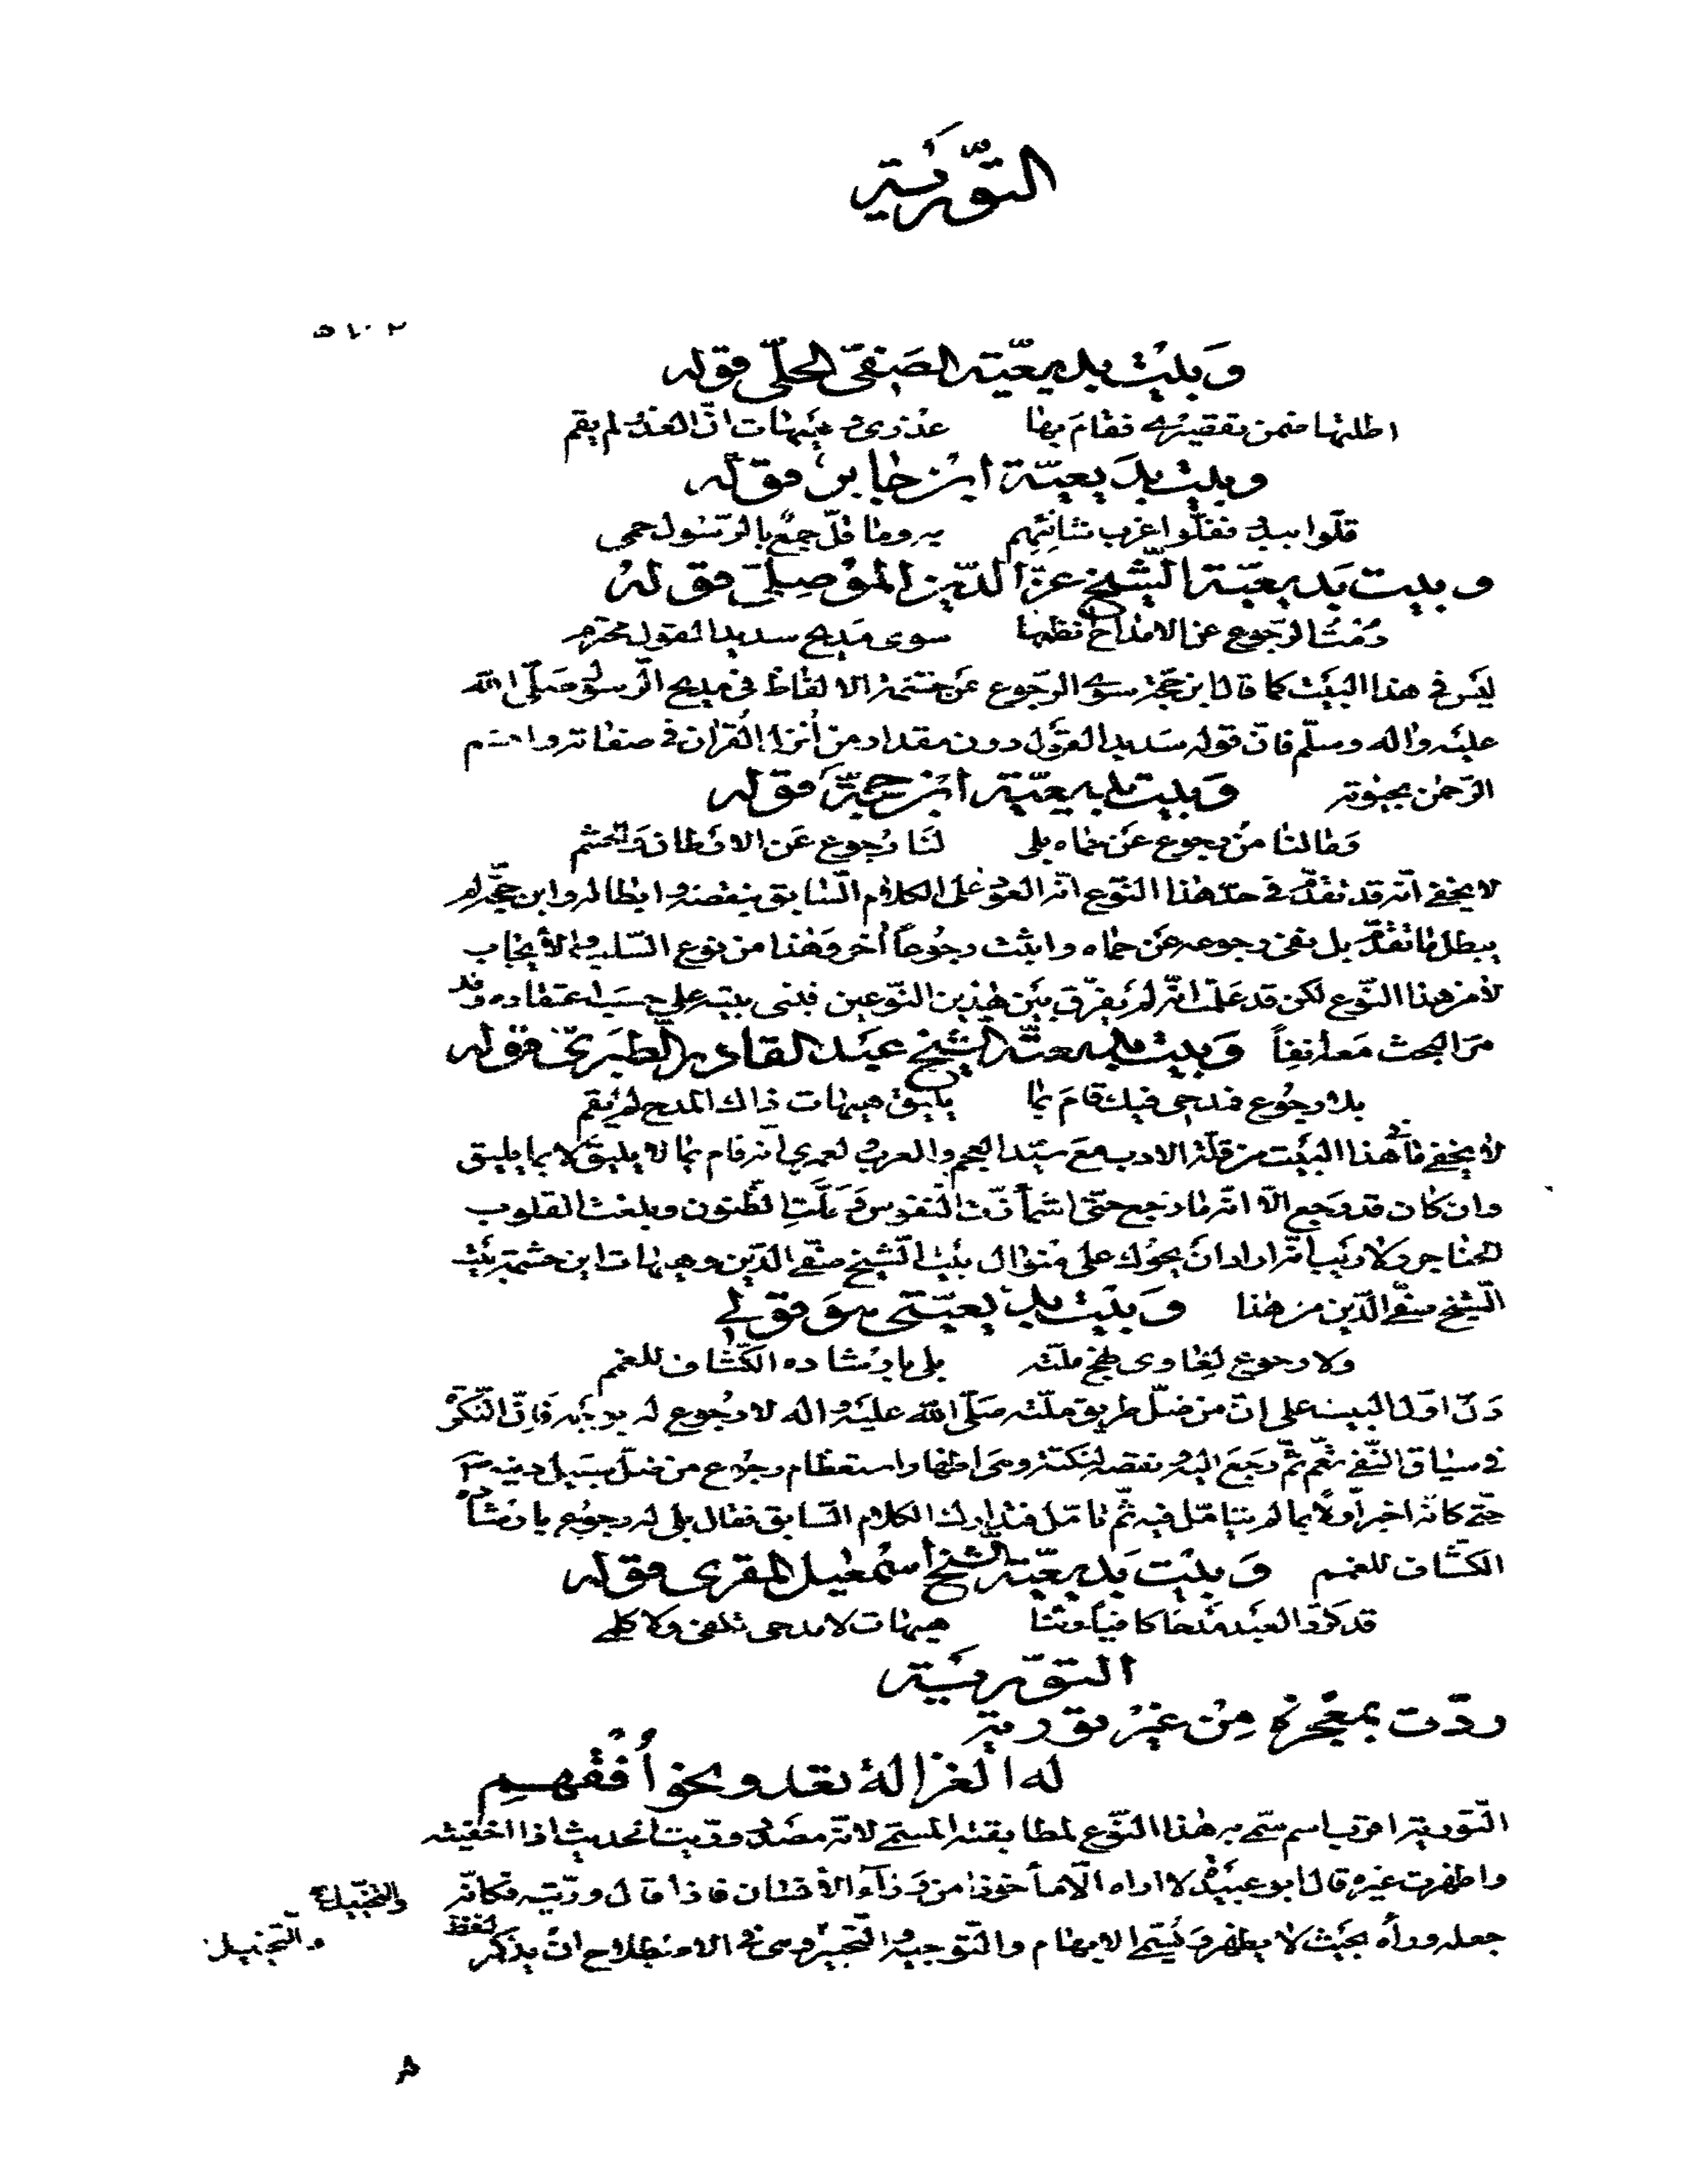 التّورية
وبيت بديعية الصفيّ الحلّي قوله
اطلتها ضمن تقصيرى فقام بها عذرى وهيهات انّ العذر لم يقم
وبيت بديعيّة ابن جابر قوله
قلّوا ببدر ففلّوا غرب شانئهم به وما قلّ جمع بالرّسول حمى
وبيت بديعيّة الشّيخ عزّ الدّين الموصلىّ قوله
رُمْتُ الرّجوع عن الامداح نظمها سوى مديح سديد القول محترم
ليس فى هذا البيت كما قال ابن حجّة سوى الرّجوع عن حشمة الالفاظ فى مديح الرّسول صلّى الله
عليه واله وسلّم فانّ قوله سديد القول دون مقدار من أنزل القران فى صفاته واقسم
الرّحمن بحيوته وبيت بديعيّة ابن حجّة قوله
وما لنا من رجوع عن حماه بلى لنا رجوع عن الاوطان والحشم
لا يخفى انّه قد تقدّم فى حدّ هذا النّوع انّه العود على الكلام السّابق بنقضه وابطاله وابن حجّة لم
يبطل ما تقدّم بل نفى رجوعه عن حماه واثبت رجوعاً أخر وهذا من نوع السّلب والأيجاب
لا من هذا النّوع لكن قد علمت انّه لم يفرّق بين هذين النّوعين فبنى بيته على حسب اعتقاده وقد
مرّ البحث معه انفاً وبيت بديعيّة الشّيخ عبد القادر الطّبرىّ قوله
بلا رجوع فمدحى فيك قام بما يليق هيهات ذاك المدح لم يقم
لا يخفى ما فى هذا البيت من قلّة الادب مع سيّد العجم والعرب لعمرى انّه قام بما لا يليق لا بما يليق
وان كان قد رجع الّا انّه ما رجع حتّى اشمأزّت النّفوس وَ الظّنون وبلغت القلوب
الحناجر ولا ريب انّه اراد ان يحوك على منوال بيت الشّيخ صفّى الدّين وهيهات اين حشمة بيت
الشّيخ صفّى الدّين من هذا وبيت بديعيّتى هو قولى
ولا رجوع لغاوى نهج ملّته بلى بارشاده الكشّاف للغمم
دلّ اوّل البيت على انّ من ضلّ طريق ملّته صلّى الله عليه واله لا رجوع له بوجه فانّ النّكرة
فى سياق النّفى تعمّ ثمّ رجع اليه ونقضه لنكتة وهى اظهار استعظام رجوع من ضلّ سبيل دينه
حتّى كانّه اخبر أوّلاً بما لم يتامّل فيه ثمّ تامّل فتدارك الكلام السّابق فقال بلى له رجوع بارشاده
الكشّاف للغمم وبيت بديعيّة الشّيخ اسمعيل المقرى قوله
قد كرّر العبد مدحا كافياً وثنا هيهات لا مدحى تكفى ولا كلمى
التورية
ردّت بمعجزة من غير تورية
له الغزالة تعدو نحو أفقهم
التّورية اقرب اسم سمّى به هذا النّوع لمطابقته المسمّى لانّه مصدر ورّيت الحديث اذا اخفيته
واظهرت غيره قال ابو عبيدة لا اراه الّا مأخوذا من وراء الانسان فاذا قال ورّيته فكانّه
جعله وراه بحيث لا يظهر وتسمّى الايهام والتّوجيه والتّخيير وهى فى الاصطلاح ان يذكر لفظ
والتّخييل